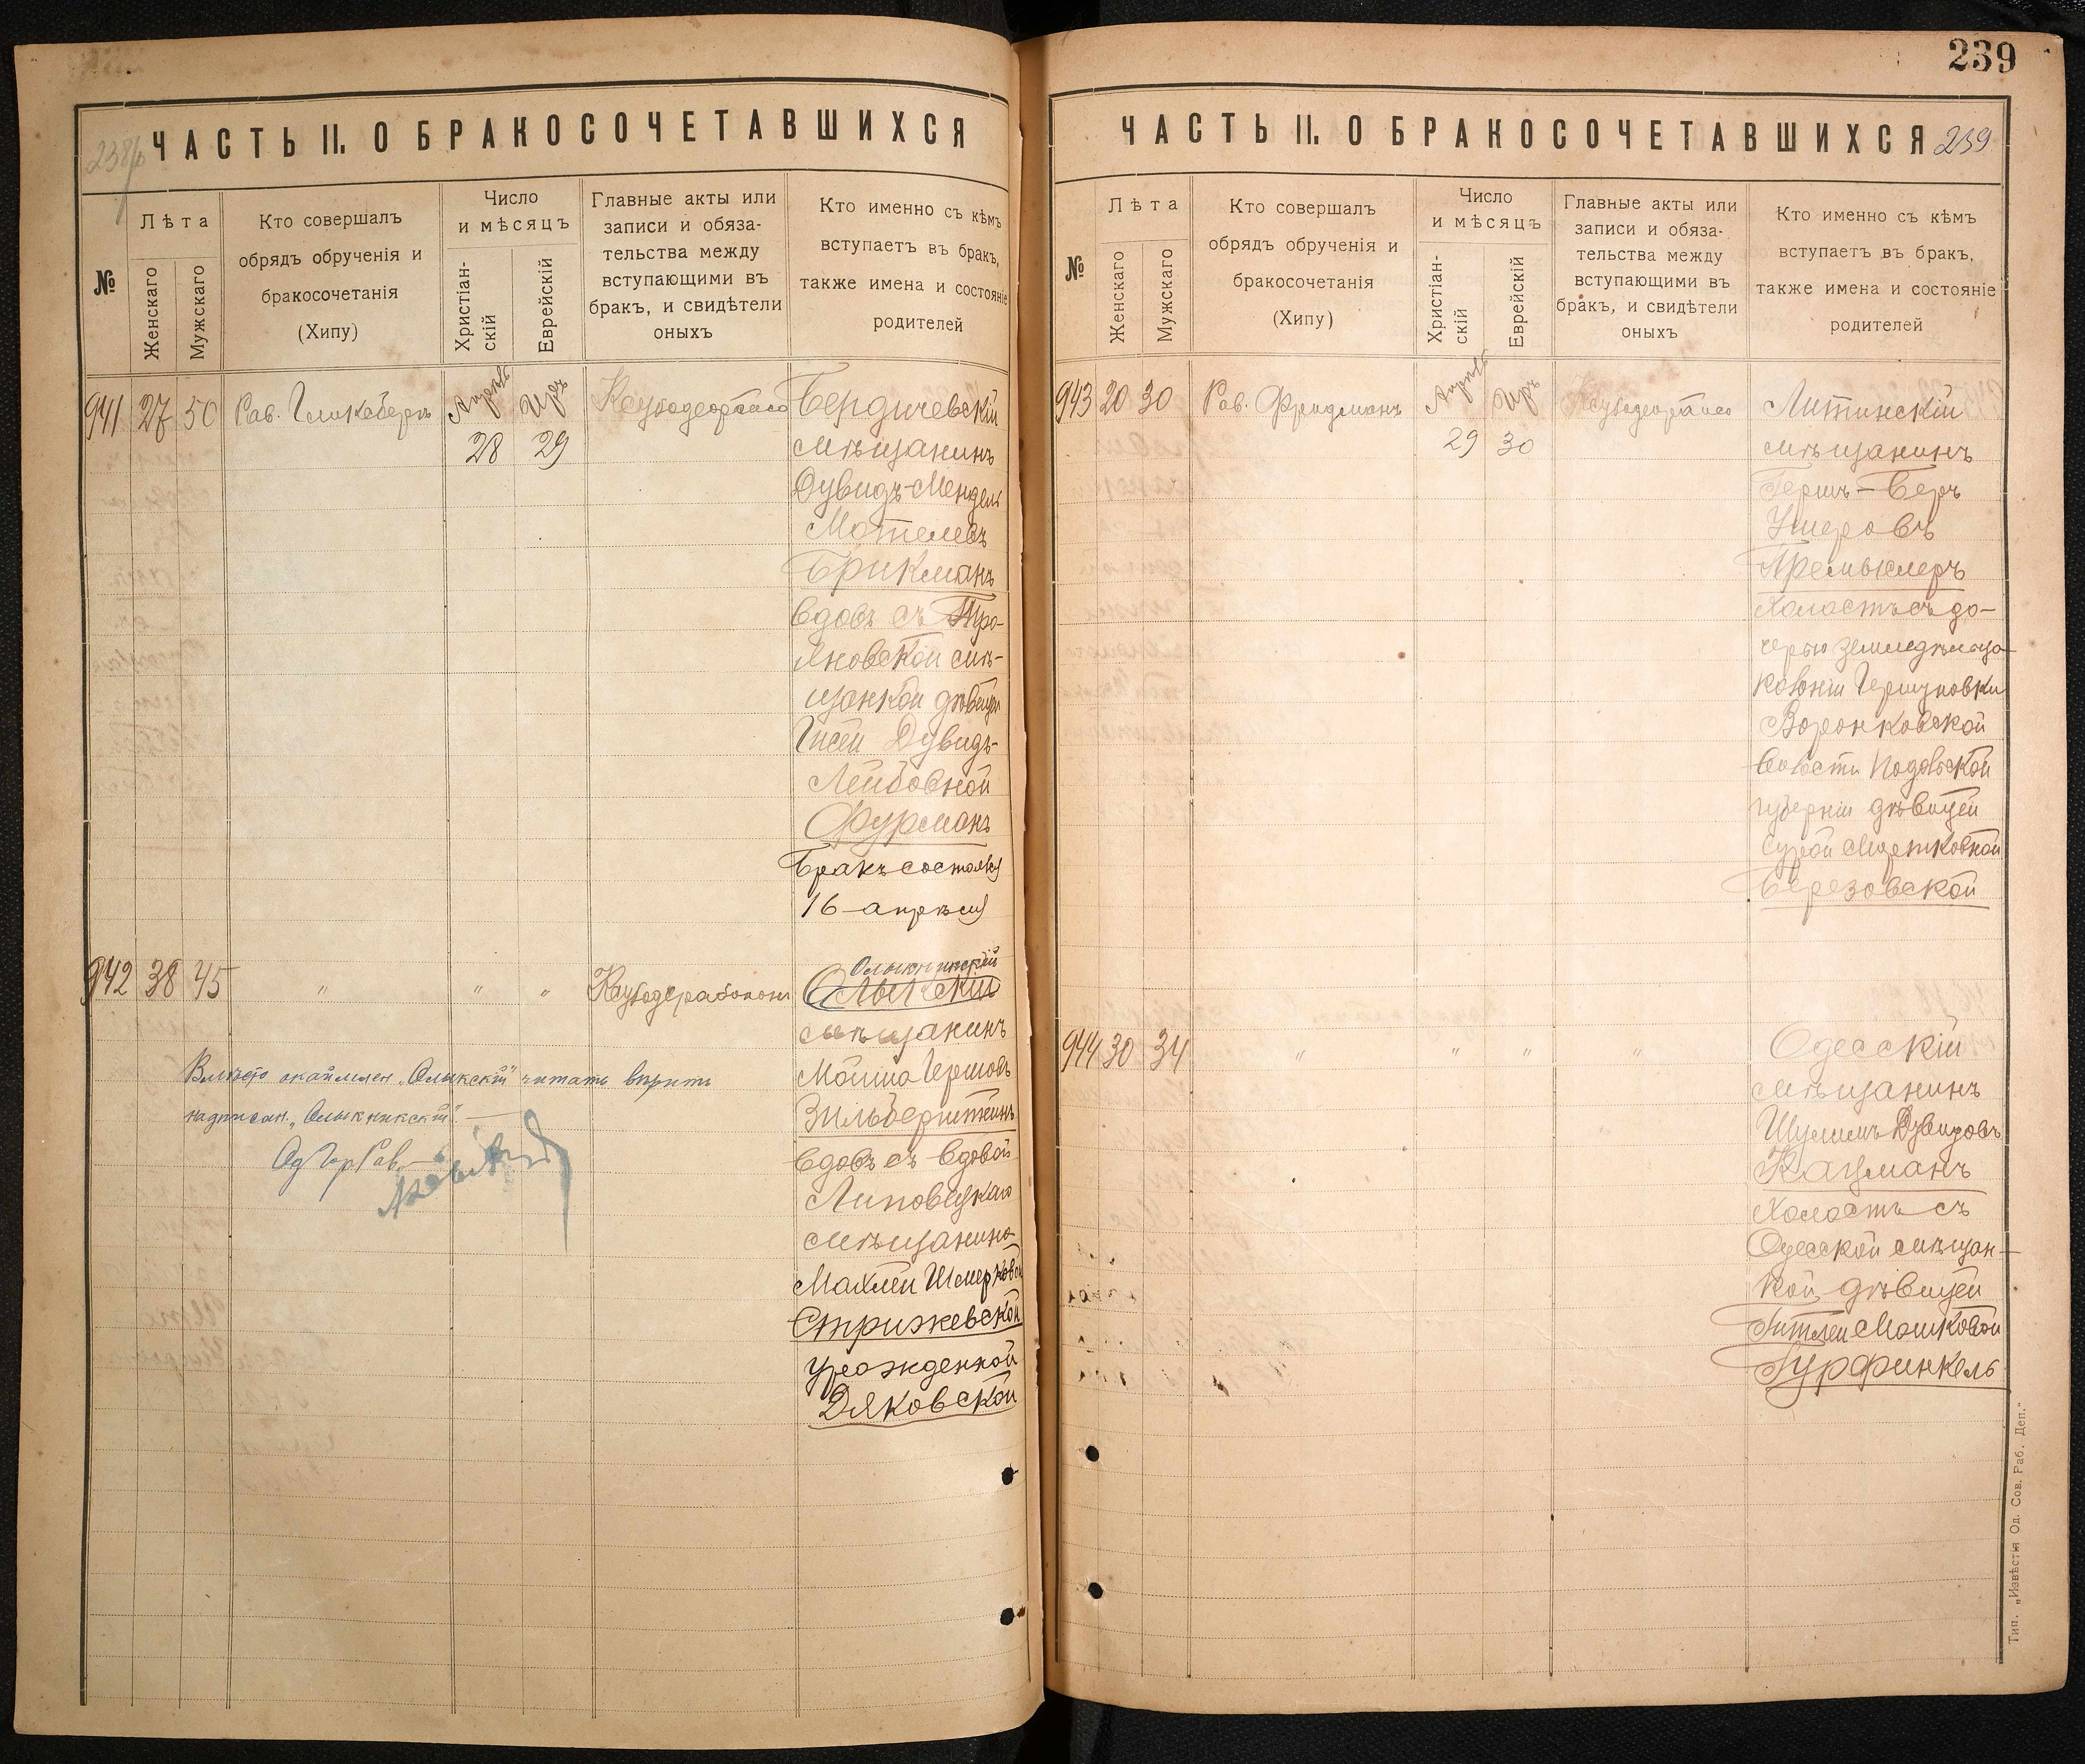 238/р
ЧАСТЬ II. О БРАКОСОЧЕТАВШИХСЯ
№
Лѣта
Женскаго
Мужскаго
Кто совершалъ
обрядъ обрученія и
бракосочетанія
(Хипу)
Число
и мѣсяцъ
Христіан-
скій
Еврейскій
Главные акты или
записи и обяза-
тельства между
вступающими въ
бракъ, и свидѣтели
оныхъ
Кто именно съ кѣмъ
вступаетъ въ бракъ,
также имена и состояніе
родителей
941 27 50 Рав. Апрель
28 29
Бердичевскій
мѣщанинъ
Дувидъ-Мендель
Мотелевъ
Брикманъ
вдовъ съ Тро-
яновской мѣ-
щанкой дѣвицей
Гисей Дувидъ-
Лейбовной
Фурманъ
Бракъ состоялся
16 апрѣля
942 38 45 " " "
Олыкникскій
Олыкскій
мѣщанинъ
Мошко Гершовъ
Зильберштейнъ
вдовъ съ вдовой
Липовецкаго
мѣщанина
Махлей Шмерковой
Стрижевской
урожденной
Дяковской
Вмѣсто окаймлен. „Олыкскій" читать вѣрить
надписан. „Олыкникскій".
Од Гор Рав.
239
ЧАСТЬ II. О БРАКОСОЧЕТАВШИХСЯ 239
№
Лѣта
Женскаго
Мужскаго
Кто совершалъ
обрядъ обрученія и
бракосочетанія
(Хипу)
Число
и мѣсяцъ
Христіан-
скій
Еврейскій
Главные акты или
записи и обяза-
тельства между
вступающими въ
бракъ, и свидѣтели
оныхъ
Кто именно съ кѣмъ
вступаетъ въ бракъ,
также имена и состояніе
родителей
943 20 30 Рав. Фридманъ Апрель Иръ
29 30
Литинскій
мѣщанинъ
Гершъ-Беръ
Ушеровъ
Премыслеръ
холостъ съ до-
черью земледѣльца
колоніи Гершуновки
Воронковской
волости Подольской
губерніи дѣвицей
Сурой Мортковной
Березовской
944 30 34 " " " "
Одесскій
мѣщанинъ
Шулимъ Дувидовъ
Кацманъ
холостъ съ
Одесской мѣщан-
кой дѣвицей
Гитлей Мошковой
Гурфинкель
Тип. „Извѣстія Од. Сов. Раб. Деп."